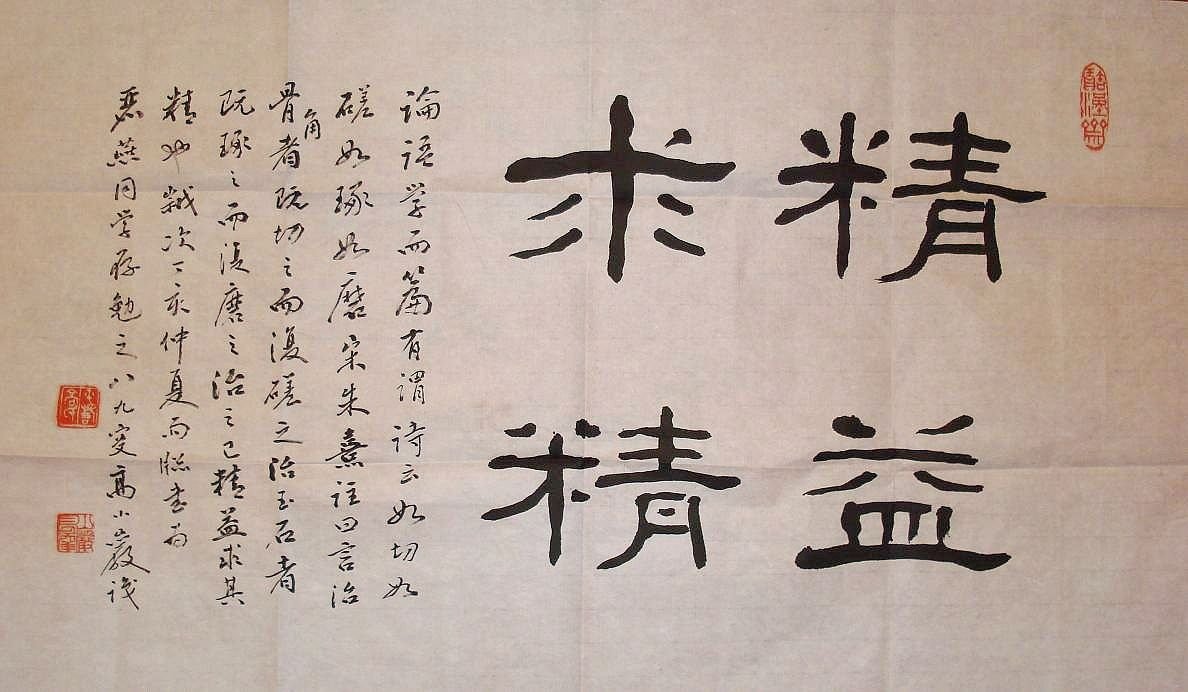 精益
求精
論語学而篇有謂詩云如切如
磋如琢如磨宋朱熹註曰言治
骨角者既切之而復磋之治玉石者
既琢之而復磨之治之已精益求其
精也歲次丁亥仲夏雨牕書为
燕同学存勉之八九叟高小巖識